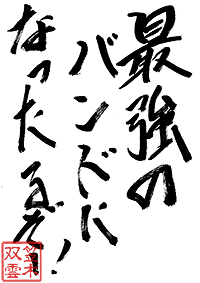 最強の
バンドに
なったるぞ!
双雲